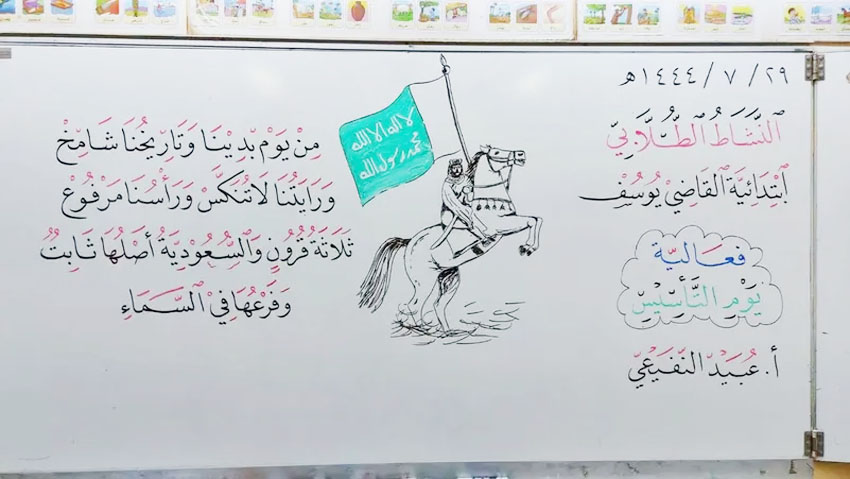 ٢٩ / ٧ / ١٤٤٤هـ
النَّشَاطُ الطُّلَّابِيّ
ابْتِدَائِيَّةُ القَاضِيْ يُوسُفْ
فَعَالِيَّة
يَوْمِ التَّأسِيْسِ
أ. عُبَيْدْ النُّفَيْعِيّ
لا اله الا الله
محمد رسول الله
مِنْ يَوْمْ بِدِيْنَا وَتَارِيْخُنَا شَامِخْ
وَرَايَتُنَا لَا تُنَكَّسْ وَرَأْسُنَا مَرْفُوْعْ
ثَلَاثَةُ قُرُونٍ وَالسُّعُوْدِيَّةُ أَصْلُهَا ثَابِتٌ
وَفَرْعُهَا فِيْ السَّمَاءِ